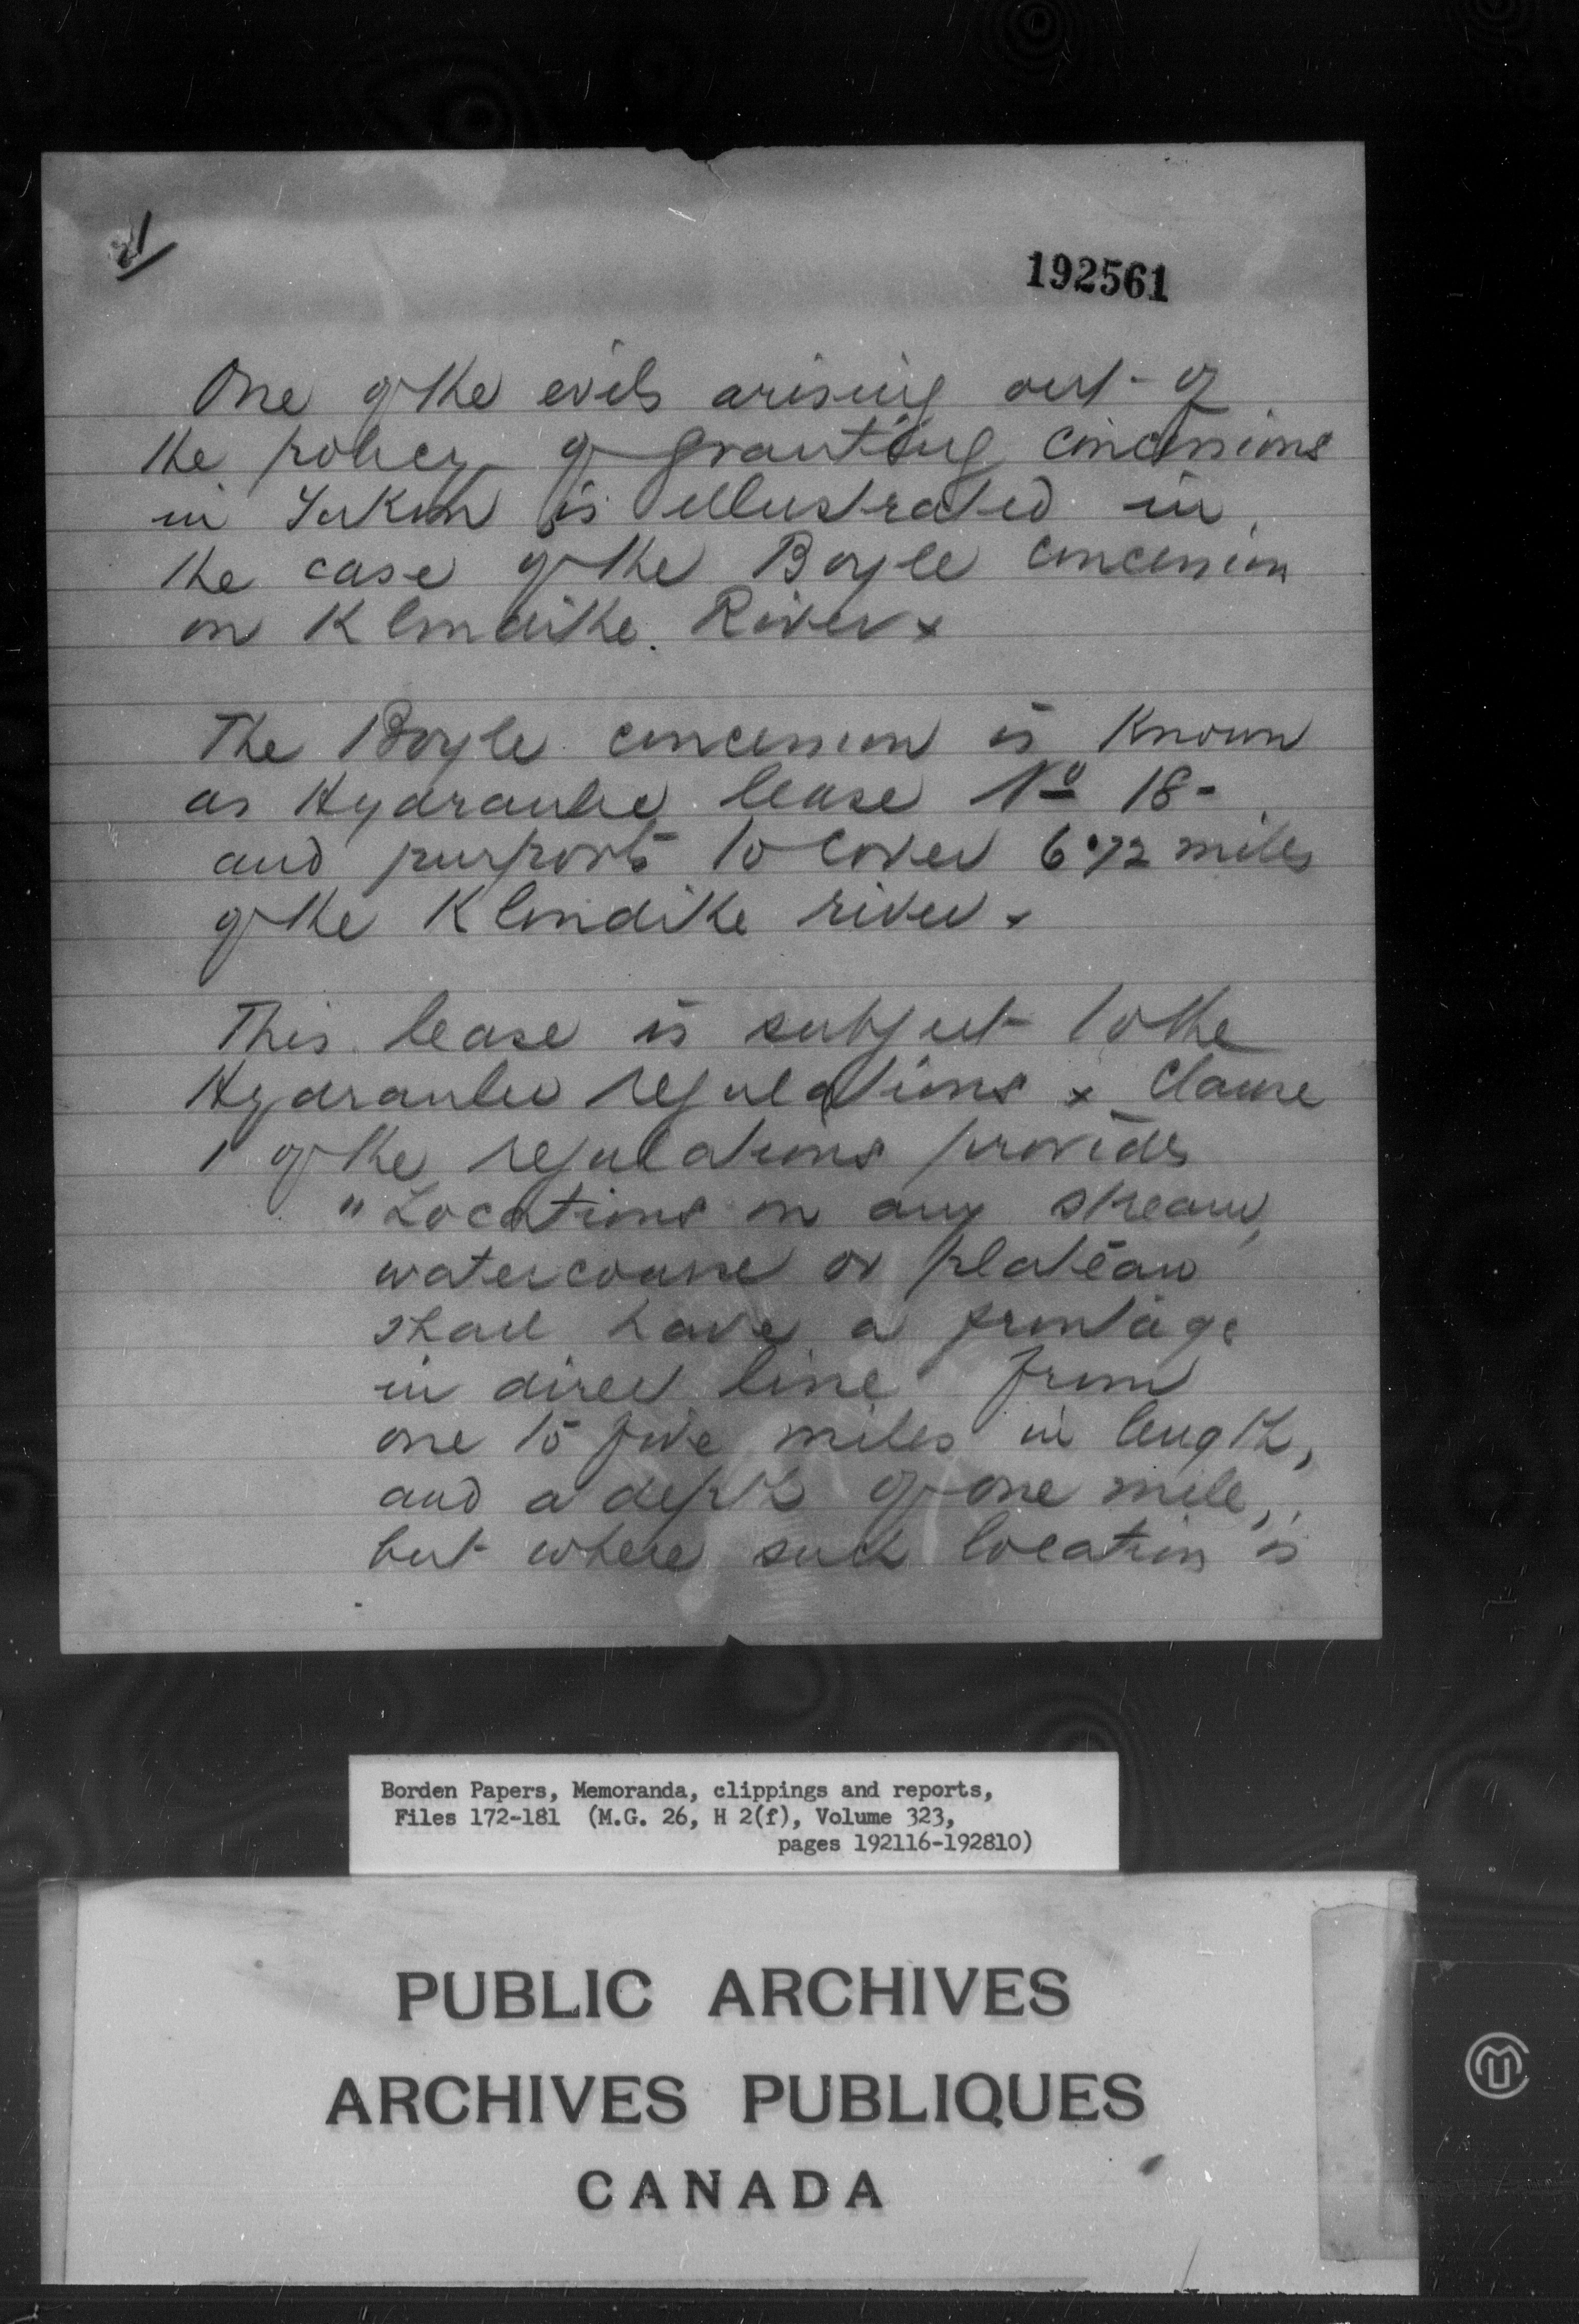 1
192561
One of the evils arising out of
the policy of granting concessions
in Yukon is illustrated in
the case of the Boyle concession
on Klondike River x
The Boyle concession is known
as Hydraulic lease No 18 -
and purports to cover 6.72 miles
of the Klondike river x
This lease is subject to the
Hydraulic regulations x Clause
1 of the regulations provides
"Locations on any stream,
watercourse or plateau
shall have a frontage
in direct line from
one to five miles in length,
and a depth of one mile,
but where such location is
Borden Papers, Memoranda, clippings and reports,
Files 172-181 (M.G. 26, H 2(f), Volume 323,
pages 192116-192810)
PUBLIC ARCHIVES
ARCHIVES PUBLIQUES
CANADA